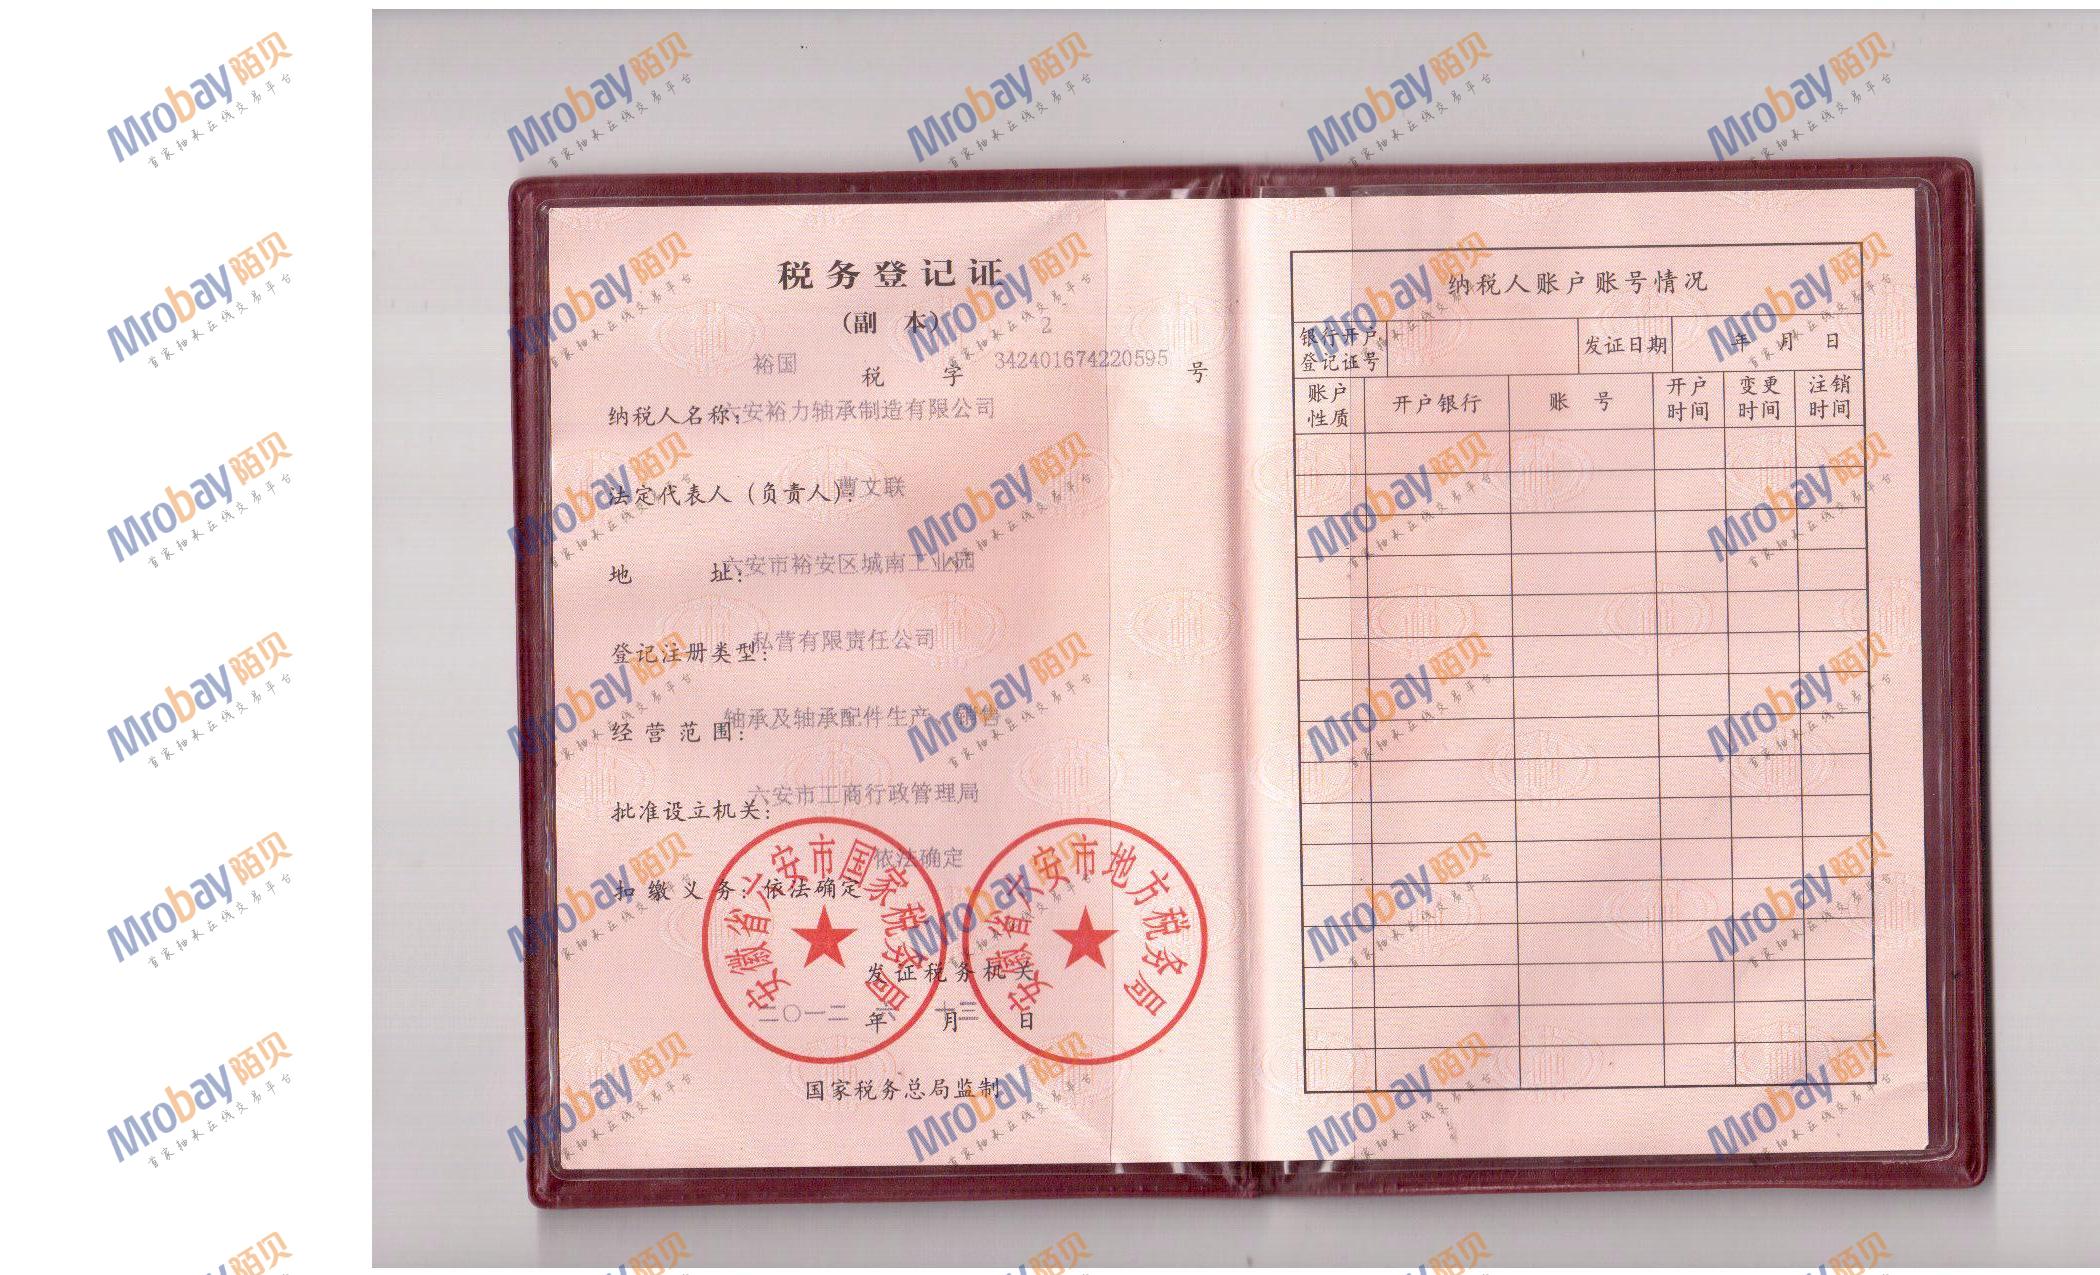 税务登记证
(副 本) 2
裕国 税 字 342401674220595 号
纳税人名称: 六安裕力轴承制造有限公司
法定代表人（负责人）: 曹文联
地 址: 六安市裕安区城南工业园
登记注册类型: 私营有限责任公司
经营范围: 轴承及轴承配件生产、销售
批准设立机关: 六安市工商行政管理局
依法确定
扣缴义务: 依法确定
安徽省六安市国家税务局
安徽省六安市地方税务局
发证税务机关
二〇一二 年 六 月 十三 日
国家税务总局监制
纳税人账户账号情况
银行开户登记证号 发证日期 年 月 日
账户性质 开户银行 账 号 开户时间 变更时间 注销时间
Mrobay陌贝
首家轴承在线交易平台